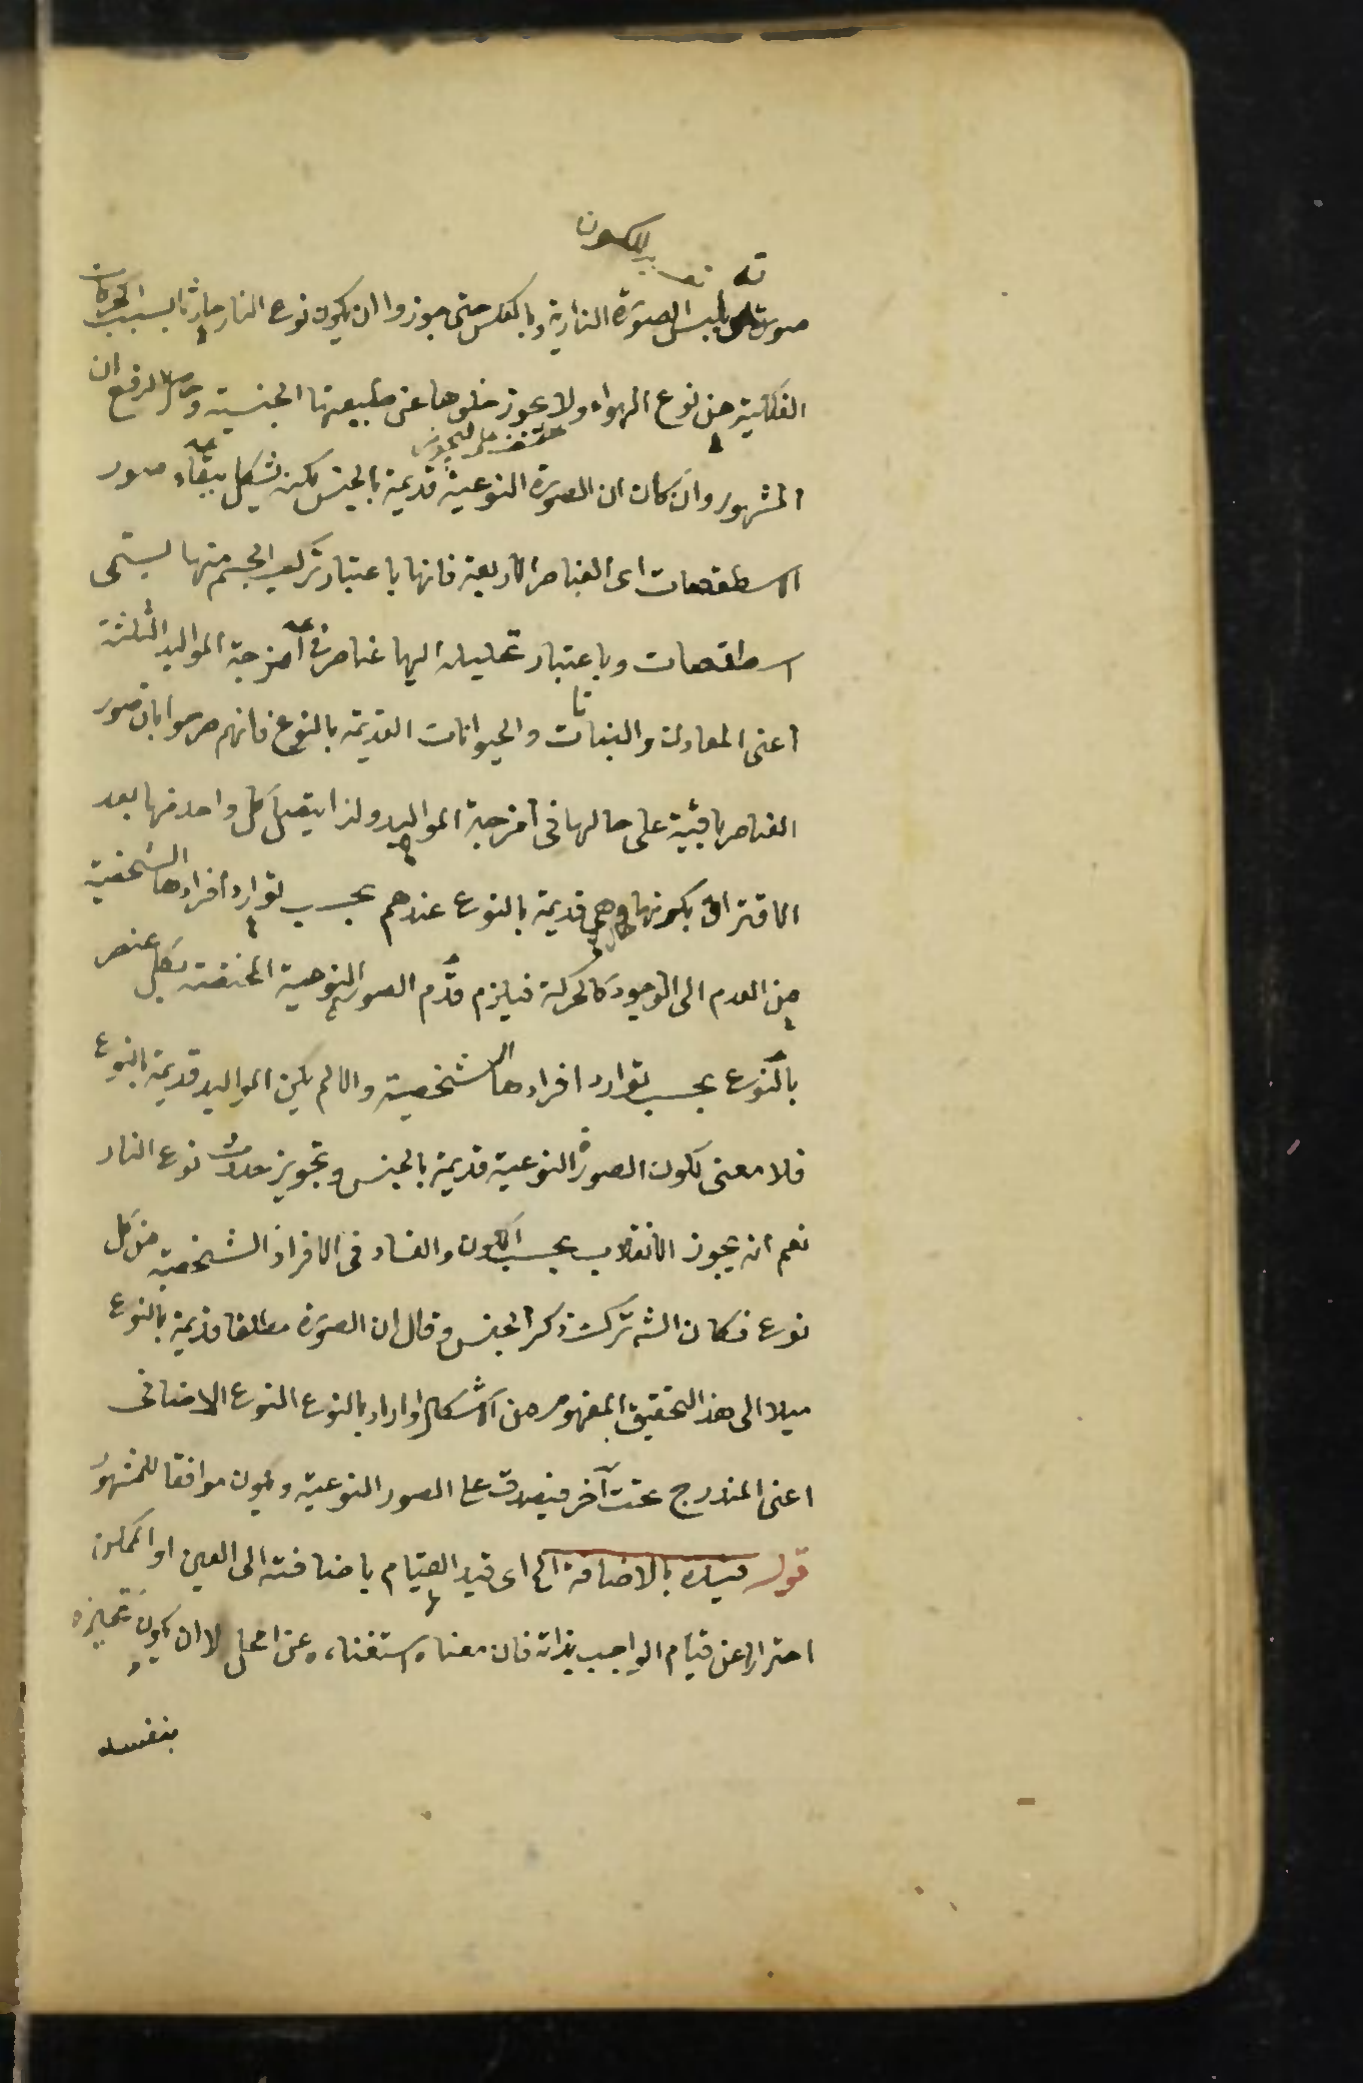 بالكون
صورته ويلبس الصورة النارية وبالعكس حتى جوزوا ان يكون نوع النار حادثا بسبب الحركات
الفلكية من نوع الهواء ولا يجوز خلوها عن طبيعتها الجنسية وحاصل الدفع ان
المشهور وان كان ان الصورة النوعية قديمة بالجنس لكنه يشكل ببقاء صور
الاسطقصات اى العناصر الاربعة فانها باعتبار تركيب الجسم منها يسمى
اسطقصات وباعتبار تحليله اليها عناصر فى امزجة المواليد الثلثة
اعنى المعادن والنباتات والحيوانات القديمة بالنوع فانهم صرحوا بان صور
العناصر باقية على حالها فى امزجة المواليد ولذا يتصل كل واحد منها بعد
الافتراق بكونها وهى قديمة بالنوع عندهم بحسب توارد افرادها الشخصية
من العدم الى الوجود كالحركة فيلزم قدم الصور النوعية المختصة بكل عنصر
بالنوع بحسب توارد افرادها الشخصية والا لم يكن المواليد قديمة بالنوع
فلا معنى لكون الصورة النوعية قديمة بالجنس وتجويز حدوث نوع النار
نعم انه يجوز الانقلاب بحسب الكون والفساد فى الافراد الشخصية من كل
نوع فكان الشه ترك ذكر الجنس وقال ان الصورة مطلقا قديمة بالنوع
ميلا الى هذا التحقيق المفهوم من الاشكال واراد بالنوع النوع الاضافى
اعنى المندرج تحت آخر فيصدق على الصور النوعية ويكون موافقا للمشهور
قوله قيده بالاضافة الخ اى قيد القيام باضافته الى العين او الممكن
احترازا عن قيام الواجب بذاته فان معناه استغناءه عن المحل لا ان يكون تحيزه
بنفسه